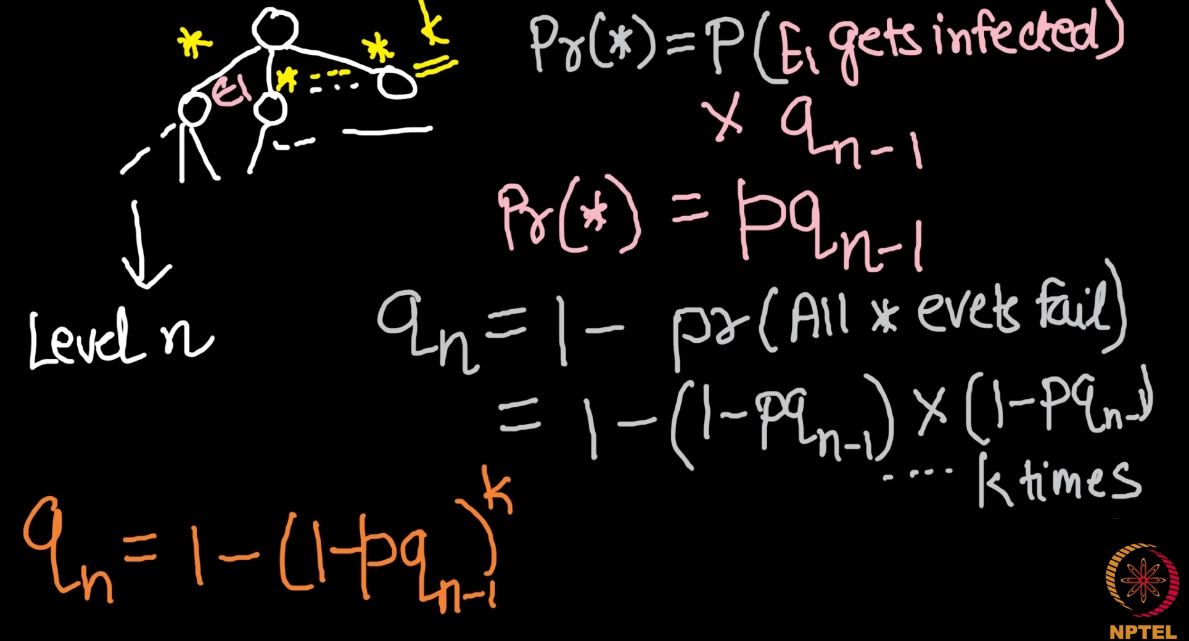 * * k
E1 * ---
Pr(*) = P(E1 gets infected)
× qn-1
Pr(*) = pqn-1
Level n
qn = 1 - pr(All * evets fail)
= 1 - (1-pqn-1) × (1-pqn-1)
.... k times
qn = 1 - (1-pqn-1)^k
NPTEL